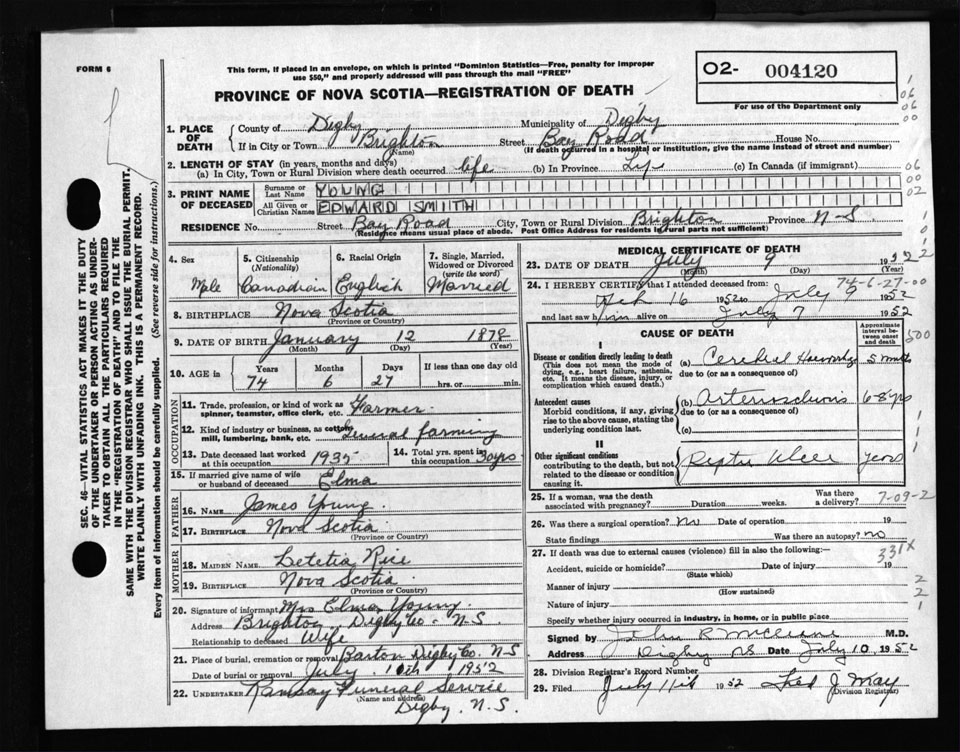 FORM 6
This form, if placed in an envelope, on which is printed "Dominion Statistics—Free, penalty for improper
use $50," and properly addressed will pass through the mail "FREE"
O2- 004120
For use of the Department only
PROVINCE OF NOVA SCOTIA—REGISTRATION OF DEATH
1. PLACE OF DEATH
County of Digby Municipality of Digby
If in City or Town Brighton Street Bay Road House No.
(Name) (If death occurred in a hospital or institution, give the name instead of street and number)
2. LENGTH OF STAY (in years, months and days)
(a) In City, Town or Rural Division where death occurred life (b) In Province Life (c) In Canada (if immigrant)
3. PRINT NAME OF DECEASED
Surname or Last Name YOUNG
All Given or Christian Names EDWARD SMITH
RESIDENCE No. Street Bay Road City, Town or Rural Division Brighton Province N-S
(Residence means usual place of abode. Post Office Address for residents in rural parts not sufficient)
4. Sex Male
5. Citizenship (Nationality) Canadian
6. Racial Origin English
7. Single, Married, Widowed or Divorced (write the word) Married
8. BIRTHPLACE Nova Scotia
(Province or Country)
9. DATE OF BIRTH January 12 1878
(Month) (Day) (Year)
10. AGE in Years 74 Months 6 Days 27 If less than one day old hrs. or min.
OCCUPATION
11. Trade, profession, or kind of work as spinner, teamster, office clerk, etc. Farmer
12. Kind of industry or business, as cotton mill, lumbering, bank, etc. General farming
13. Date deceased last worked at this occupation 1935
14. Total yrs. spent in this occupation 50yrs
15. If married give name of wife or husband of deceased Elma
FATHER
16. NAME James Young
17. BIRTHPLACE Nova Scotia
(Province or Country)
MOTHER
18. MAIDEN NAME Letetia Rice
19. BIRTHPLACE Nova Scotia
(Province or Country)
20. Signature of informant Mrs Elma Young
Address Brighton, Digby Co- N-S.
Relationship to deceased Wife
21. Place of burial, cremation or removal Barton Digby Co. N-S
Date of burial or removal July 10th 1952
22. UNDERTAKER Ramsay Funeral Service
(Name and address)
Digby. N.S.
MEDICAL CERTIFICATE OF DEATH
23. DATE OF DEATH July 9 1952
(Month) (Day) (Year)
74-6-27-00
24. I HEREBY CERTIFY that I attended deceased from:
Feb 16 1952 to July 9 1952
and last saw him alive on July 7 1952
CAUSE OF DEATH
Approximate interval between onset and death
I
Disease or condition directly leading to death
(This does not mean the mode of dying, e.g., heart failure, asthenia, etc. It means the disease, injury, or complication which caused death.)
(a) Cerebral
due to (or as a consequence of)
Antecedent causes
Morbid conditions, if any, giving rise to the above cause, stating the underlying condition last.
(b) Arteriosclerosis 6-8yrs
due to (or as a consequence of)
(c)
II
Other significant conditions
contributing to the death, but not related to the disease or condition causing it.
Peptic Ulcer years
25. If a woman, was the death associated with pregnancy? Duration weeks. Was there a delivery?
7-09-2
26. Was there a surgical operation? No Date of operation 19
State findings Was there an autopsy? no
331X
27. If death was due to external causes (violence) fill in also the following:
Accident, suicide or homicide? Date of injury 19
(State which)
Manner of injury
(How sustained)
Nature of injury
Specify whether injury occurred in industry, in home, or in public place
Signed by John R M.D.
Address Digby NS Date July 10 1952
28. Division Registrar's Record Number
29. Filed July 11th 1952 Fred J May
Division Registrar
SEC. 46—VITAL STATISTICS ACT MAKES IT THE DUTY
OF THE UNDERTAKER OR PERSON ACTING AS UNDER-
TAKER TO OBTAIN ALL THE PARTICULARS REQUIRED
IN THE "REGISTRATION OF DEATH" AND TO FILE THE
SAME WITH THE DIVISION REGISTRAR WHO SHALL ISSUE THE BURIAL PERMIT.
WRITE PLAINLY WITH UNFADING INK. THIS IS A PERMANENT RECORD.
Every item of information should be carefully supplied. (See reverse side for instructions.)